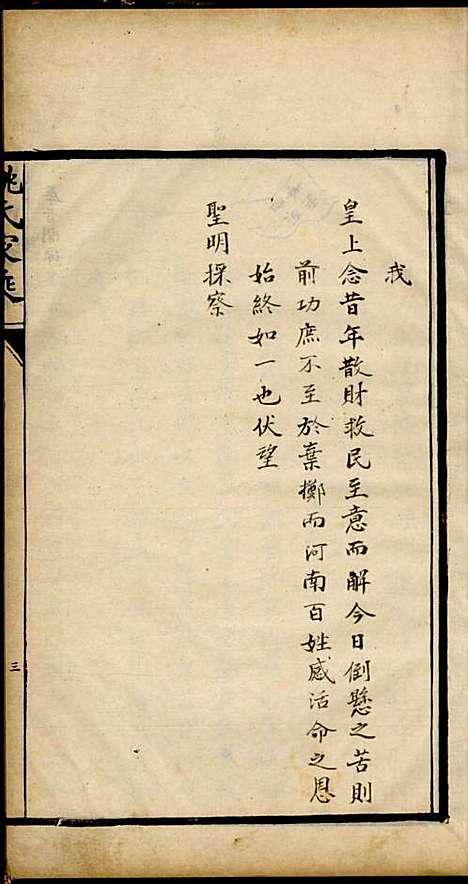 我
皇上念昔年散財救民至意而解今日倒懸之苦則
前功庶不至於棄擲而河南百姓感活命之恩
始終如一也伏望
聖明採察
姚氏家乘
三